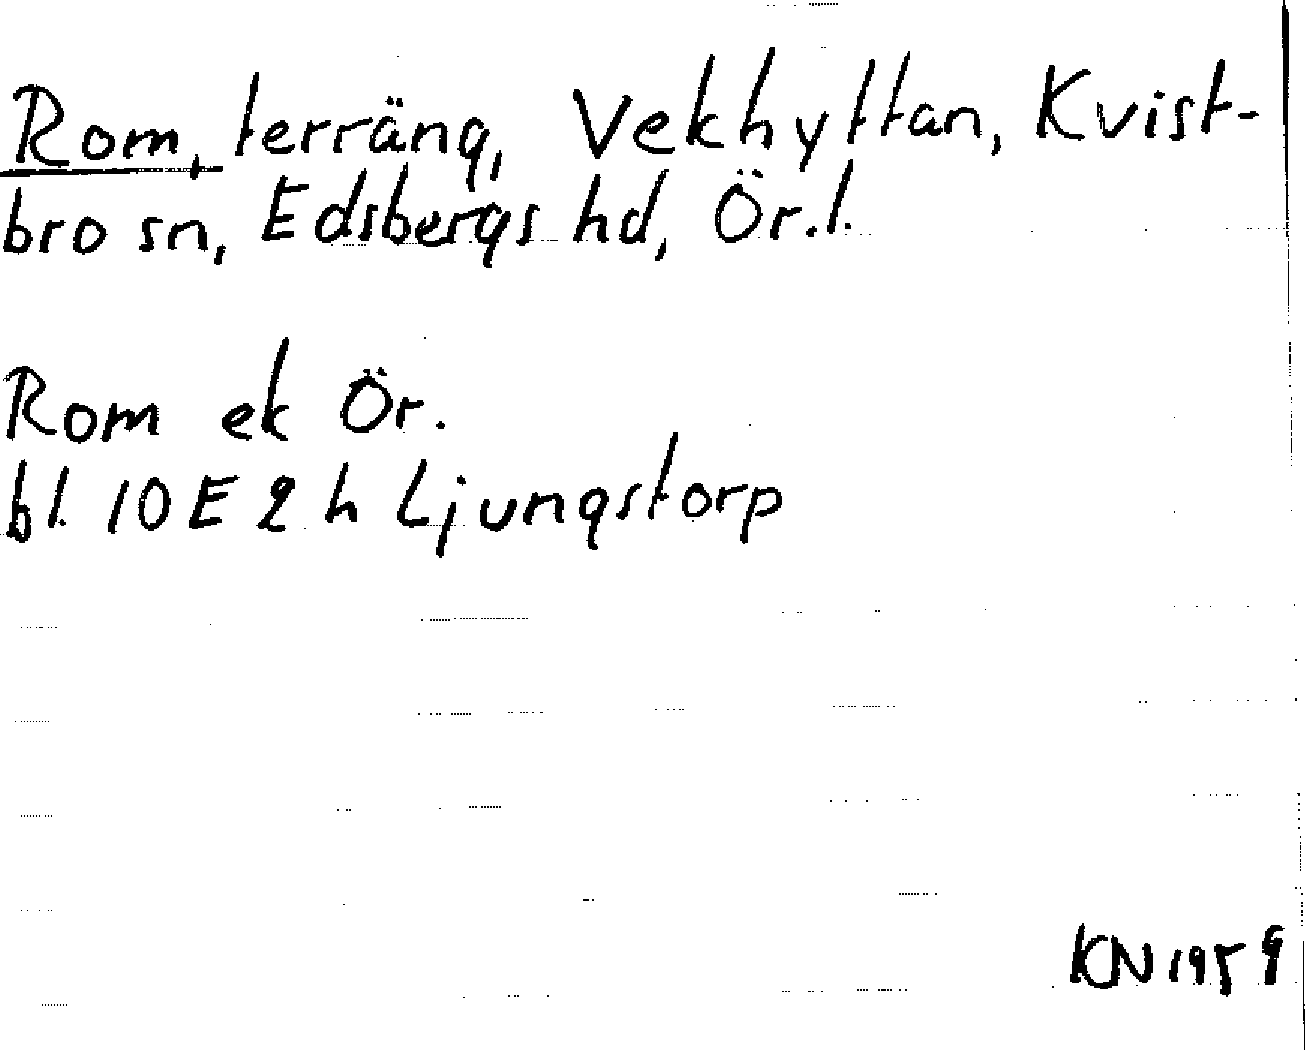 Rom, terräng, Vekhyttan, Kvist-
bro sn, Edsbergs hd, Ör.l.
Rom ek Ör.
bl. 10E 2 h Ljungstorp
KN 1959